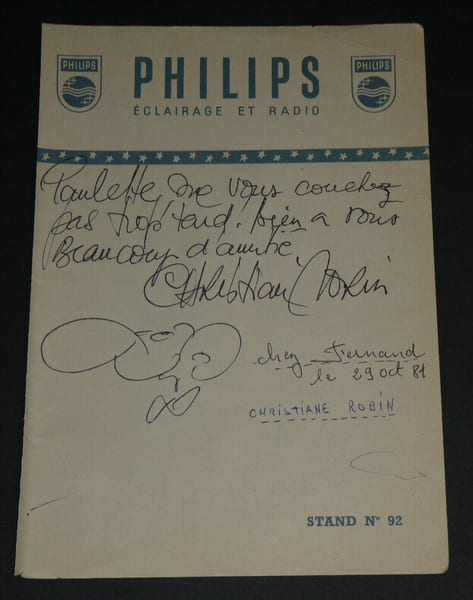 PHILIPS PHILIPS PHILIPS
ÉCLAIRAGE ET RADIO
Paulette, ne vous couchez
pas trop tard. bien a vous
Beaucoup d'amitié
Christiane Robin
chez Fernand
le 29 oct 81
CHRISTIANE ROBIN
STAND Nº 92